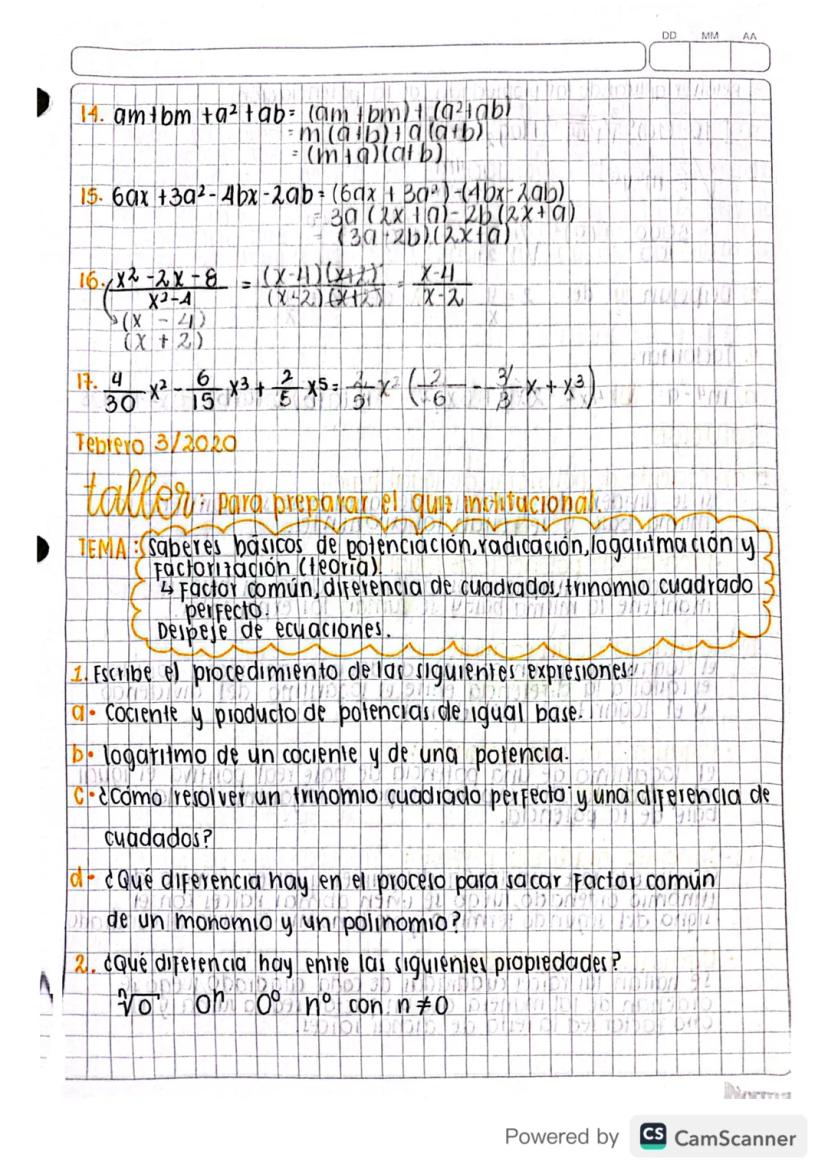 DD MM AA
14. am+bm+a²+ab = (am+bm)+(a²+ab)
= m(a+b)+a(a+b)
= (m+a)(a+b)
15. 6ax+3a²-4bx-2ab = (6ax+3a²)-(4bx-2ab)
= 3a(2x+a)-2b(2x+a)
= (3a-2b)(2x+a)
16. x²-2x-8 / x²-4 = (x-4)(x+2) / (x-2)(x+2) = x-4 / x-2
(x - 4)
(x + 2)
17. 4/30 x² - 6/15 x³ + 2/5 x⁵ = 2/5 x² (2/6 - 3/3 x + x³)
Febrero 3/2020
taller: para preparar el quiz institucional.
TEMA: saberes básicos de potenciación, radicación, logaritmación y
Factorización (teoría).
↳ Factor común, diferencia de cuadrados, trinomio cuadrado
perfecto.
Despeje de ecuaciones.
1. Escribe el procedimiento de las siguientes expresiones:
a• Cociente y producto de potencias de igual base.
b• logaritmo de un cociente y de una potencia.
c• ¿Cómo resolver un trinomio cuadrado perfecto y una diferencia de
cuadados?
d• ¿Qué diferencia hay en el proceso para sacar Factor común
de un monomio y un polinomio?
2. ¿Qué diferencia hay entre las siguientes propiedades?
ⁿ√0 0ⁿ 0⁰ n⁰ con n≠0
Norma
Powered by CS CamScanner